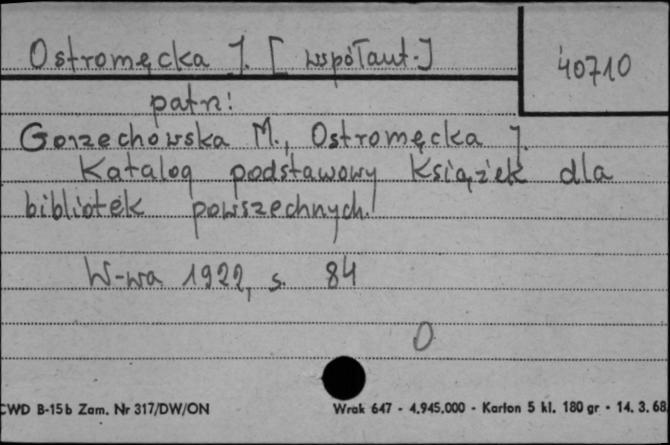 Ostromęcka J. [współaut.]
40710
patrz:
Gorzechowska M., Ostromęcka J.
Katalog podstawowy książek dla
bibliotek powszechnych.
W-wa 1922, s. 84
0
CWD B-15b Zam. Nr 317/DW/ON
Wrak 647 - 4.945.000 - Karton 5 kl. 180 gr - 14. 3. 68